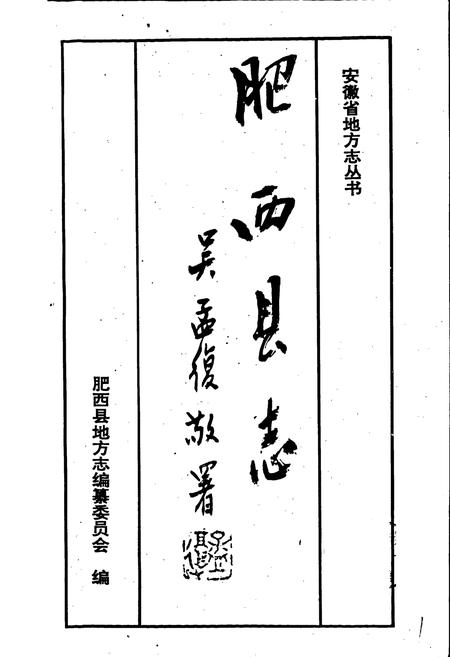 安徽省地方志丛书
肥西县志
吴孟復敬署
肥西县地方志编纂委员会 编